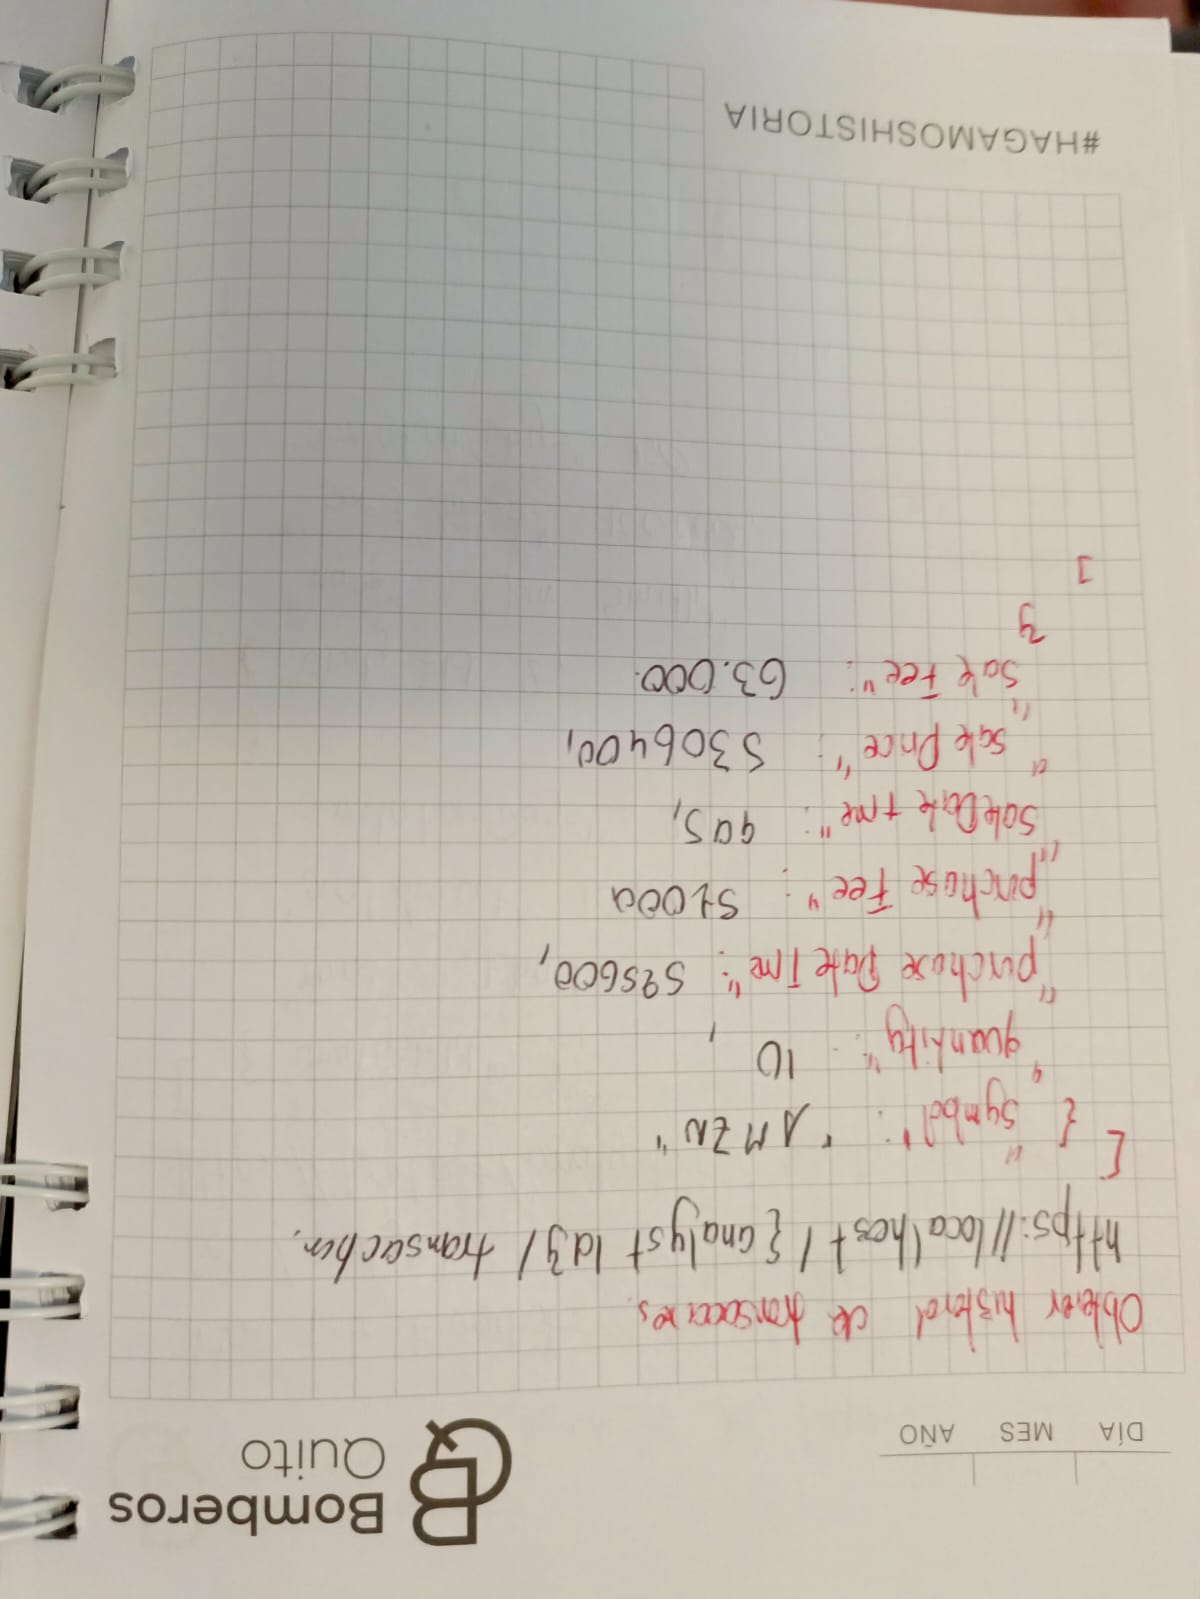 Bomberos
Quito
DÍA MES AÑO
Obtener historial de transacciones
https://localhost/{analyst Id}/transaction.
[
{ "symbol": "AMZN"
"quantity": 10,
"purchase Date Time": 525600,
"purchase Fee": 51000
"SaleDate time": 995,
"sale Price": 5306400,
"Sale Fee": 63.000.
}
]
#HAGAMOSHISTORIA